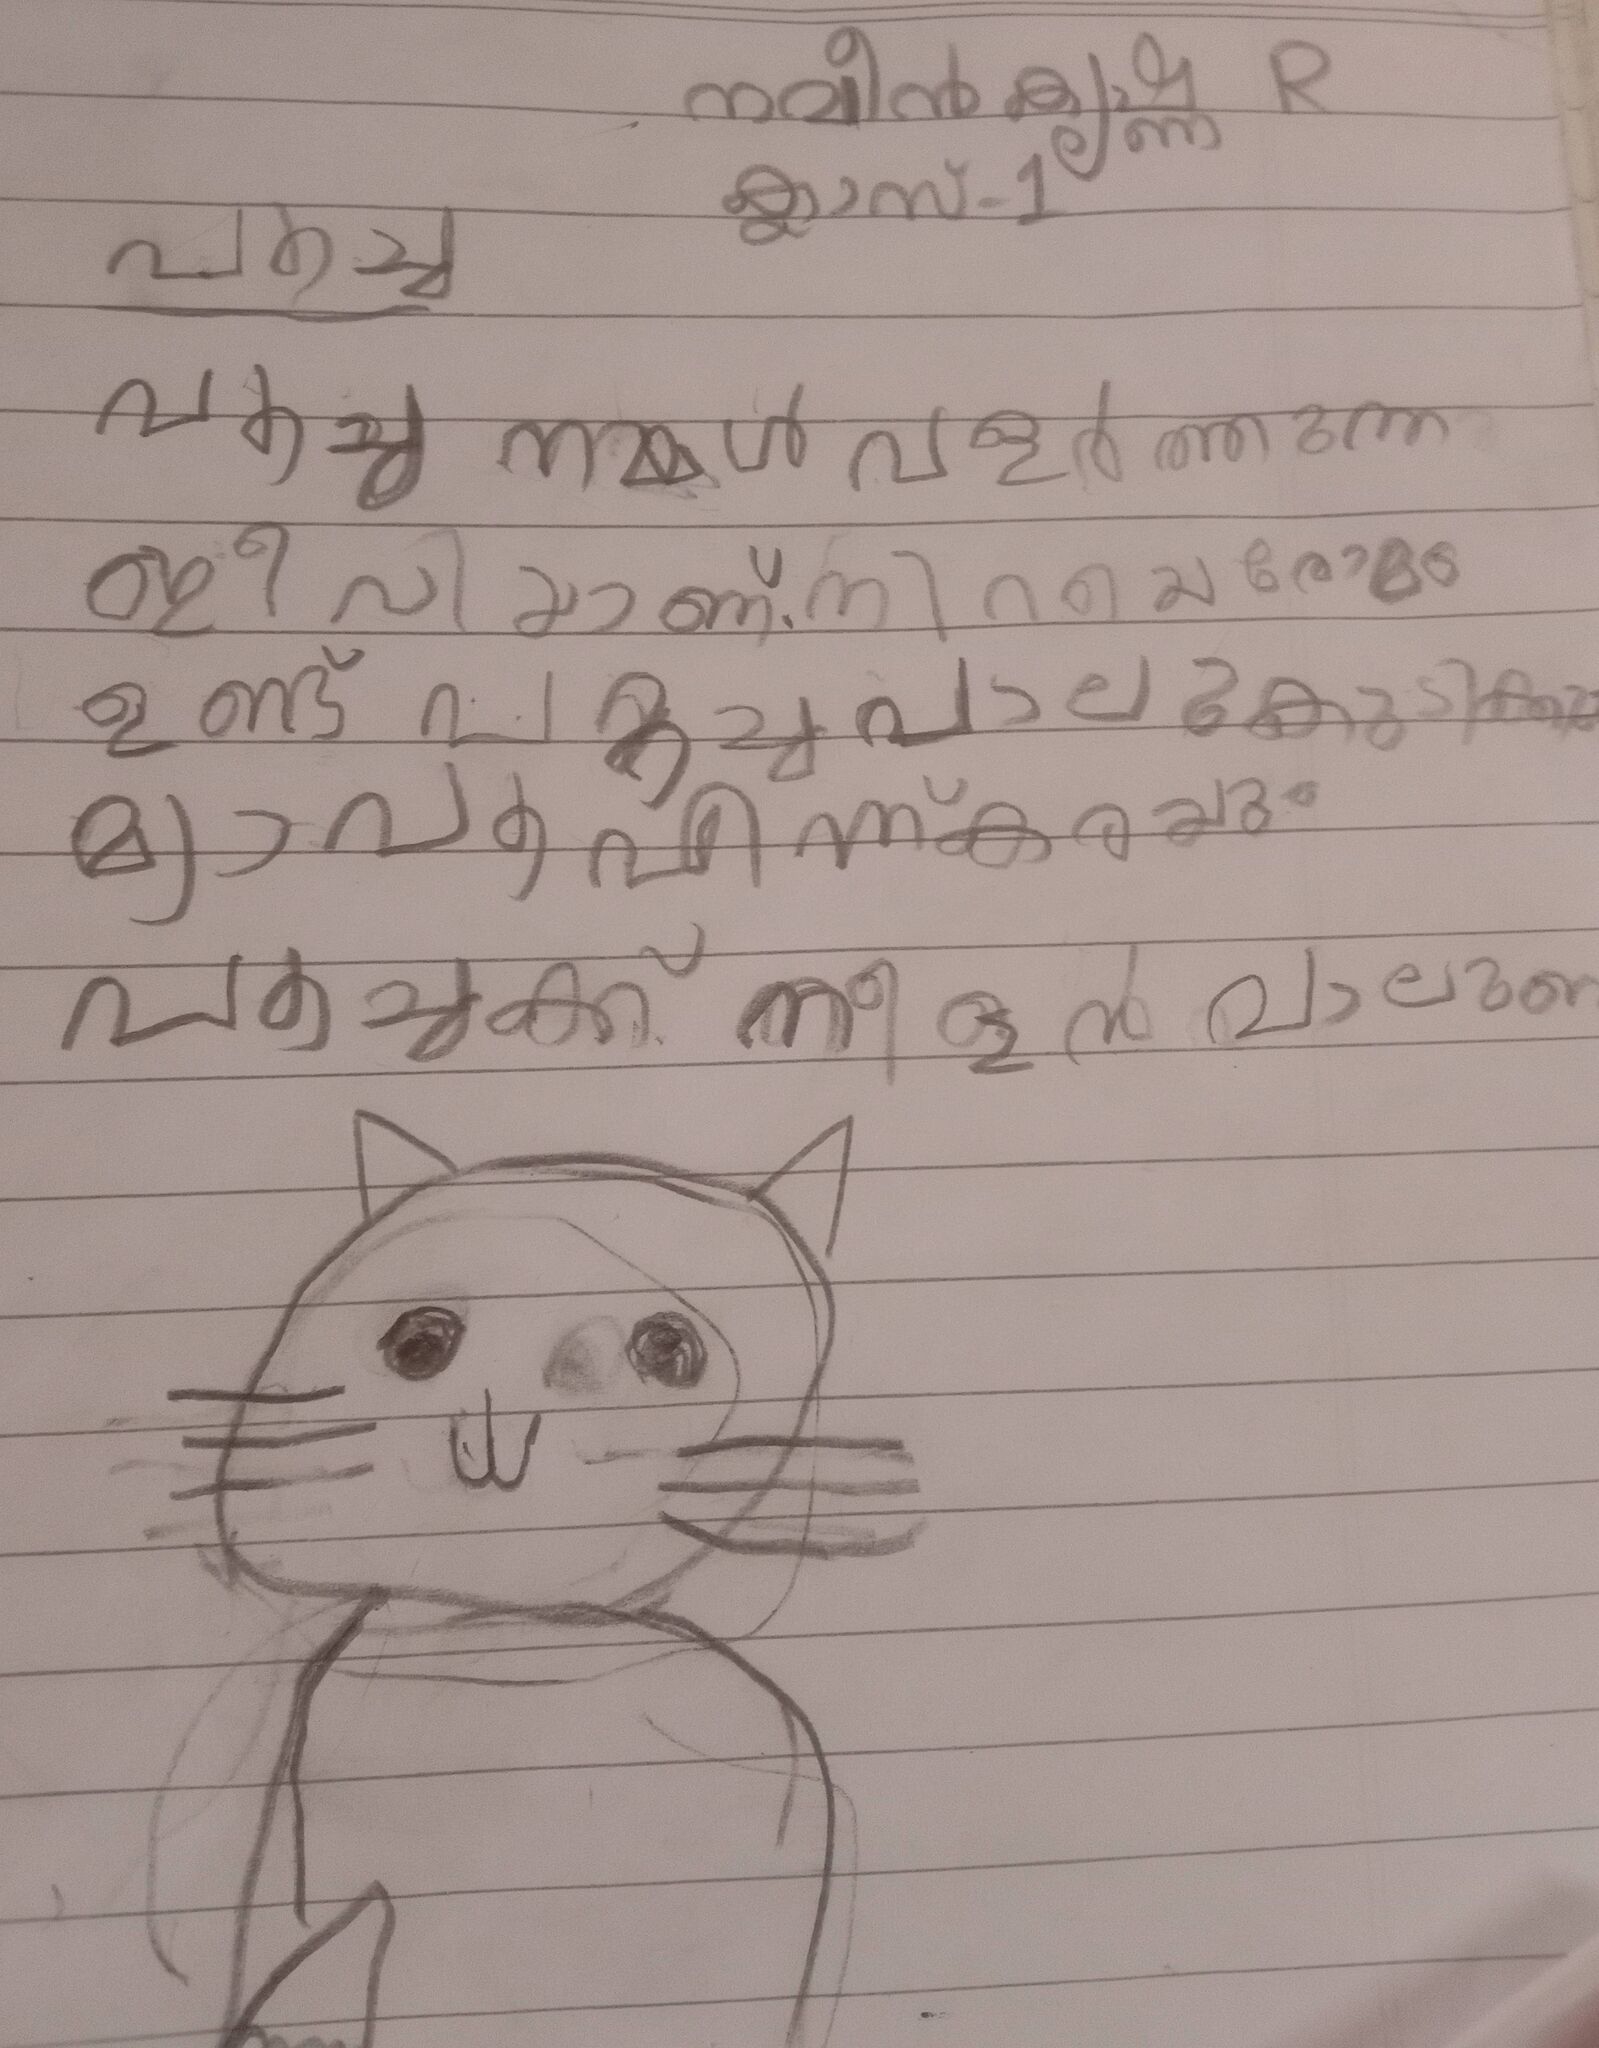 നവീൻ കൃഷ്ണ R
ക്ലാസ്-1
പൂച്ച
പൂച്ച നമ്മൾ വളർത്തുന്ന
ജീവിയാണ്. നിറയെ രോമം
ഉണ്ട് പൂച്ച പാല് കുടിക്കും
മ്യാവൂ എന്ന് കരയും
പൂച്ചക്ക് നീളൻ വാലുണ്ട